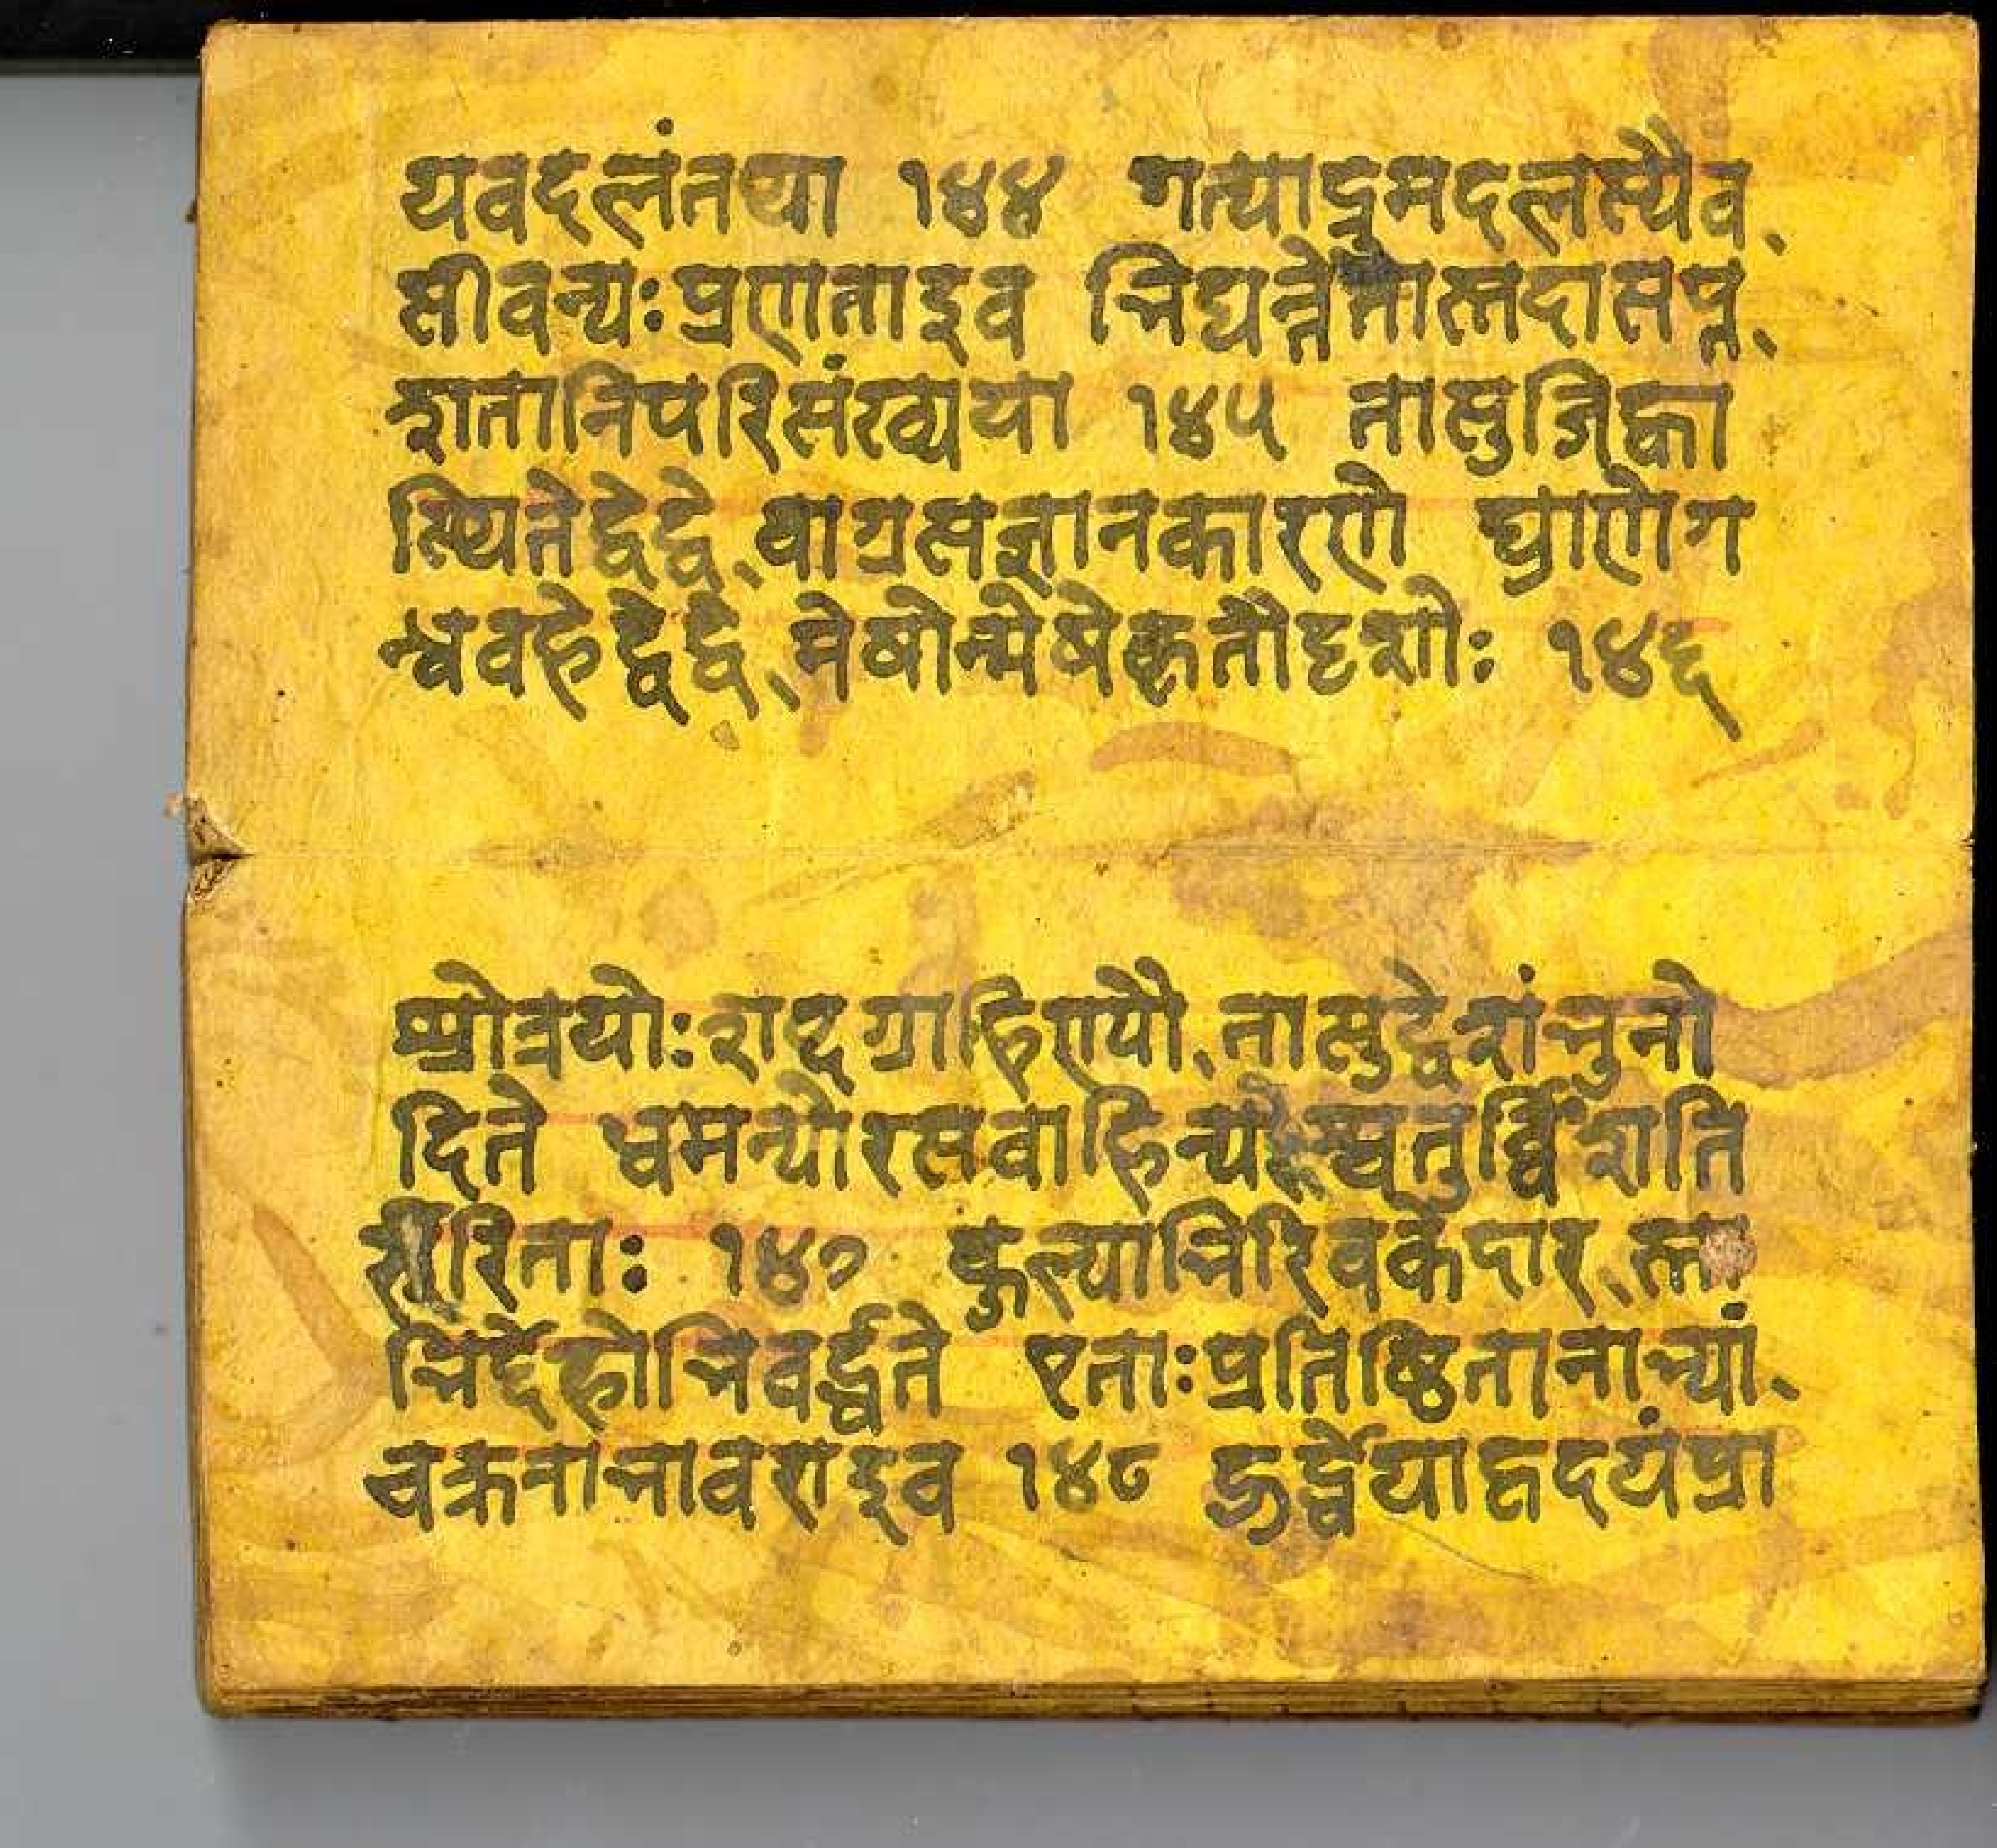 यवदलंतथा १४४ गत्याद्रुमदलस्यैव
सीवन्यःप्रणाताइव भिद्यन्तेतास्तदासप्त
शतानिपरिसंख्यया १४५ तासुजिह्वा
स्थितेद्वेद्वे वाग्रसज्ञानकारणे घ्राणेग
न्धवहेद्वेद्वे मेषोन्मेषेकृतौदृशोः १४६
श्रोत्रयोःशब्दग्राहिण्यौ तासुद्वेशंनुनो
दिते धमन्योरसवाहिन्यश्चतुर्व्विंशति
रीरिताः १४७ कुल्याभिरिवकेदार स्ता
भिर्द्देहोभिवर्द्धते एताःप्रतिष्ठितानाभ्यां
चक्रनाभावराइव १४८ ऊर्द्ध्वेयाहृदयंप्रा